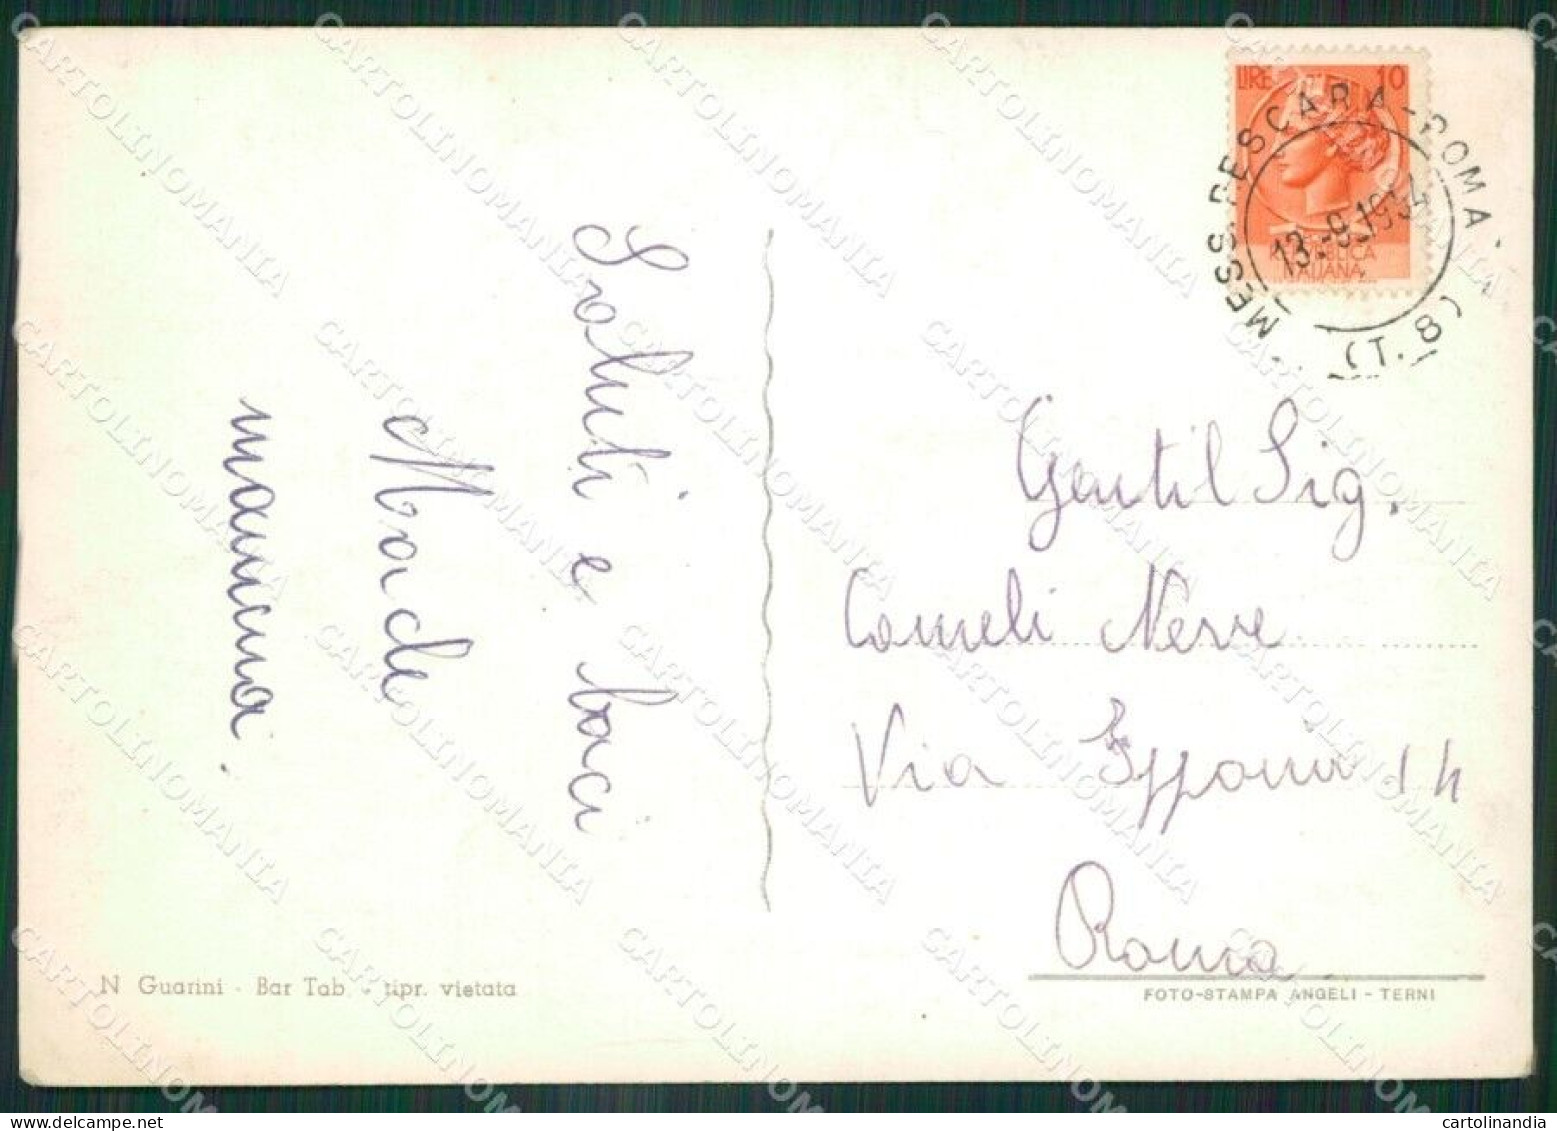 Saluti e baci
Made
mamma.
LIRE 10
REPUBBLICA
ITALIANA
MESS. PESCARA-ROMA
13.-9.1954
(T. 8)
Gentil Sig.
Cameli
Via 14
Roma
N Guarini - Bar Tab - ripr. vietata
FOTO-STAMPA ANGELI - TERNI
CARTOLINOMANIA
cartolinandia